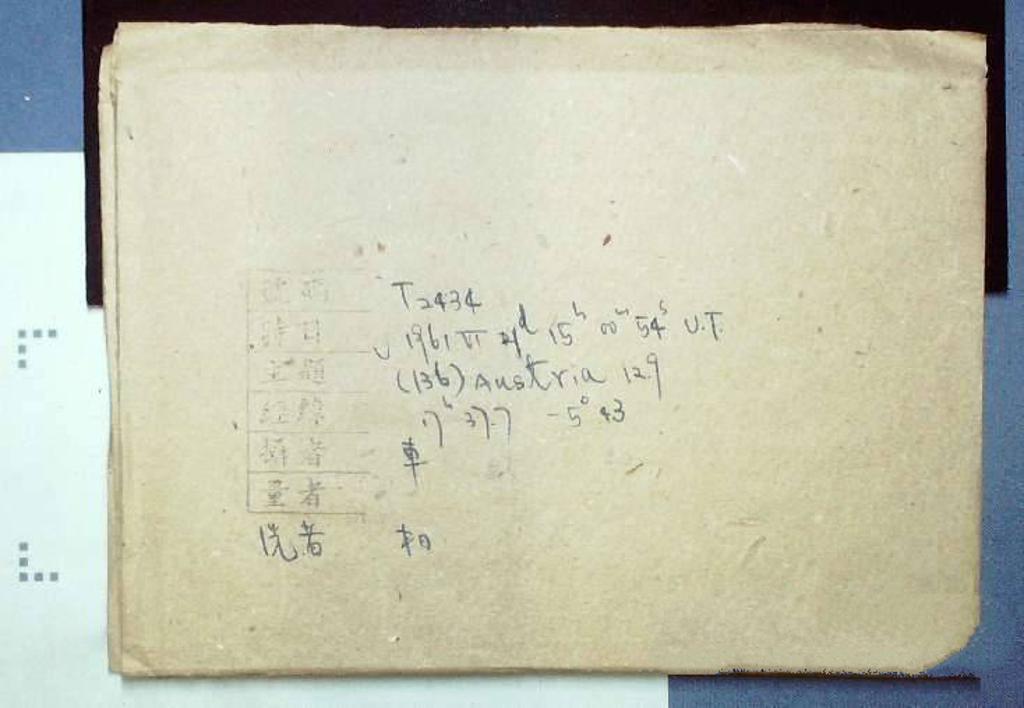 號碼 T2434
時日 1961 VI 21ᵈ 15ʰ 00ᵐ 54ˢ U.T.
主題 (136) Austria 12.9
經緯 17ʰ 37.7 -5° 43
攝者 車
量者
洗者